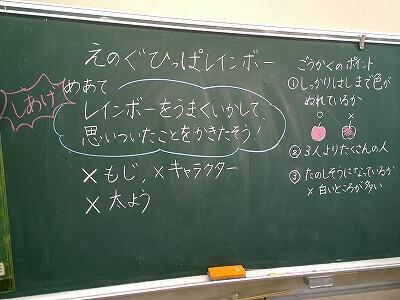 えのぐひっぱレインボー
しあげ
めあて
レインボーをうまくいかして、
思いついたことをかきたそう!
×もじ、×キャラクター
×太よう
ごうかくのポイント
①しっかりはしまで色が
ぬれているか
○ ×
②3人よりたくさんの人
③たのしそうになっているか
×白いところが多い